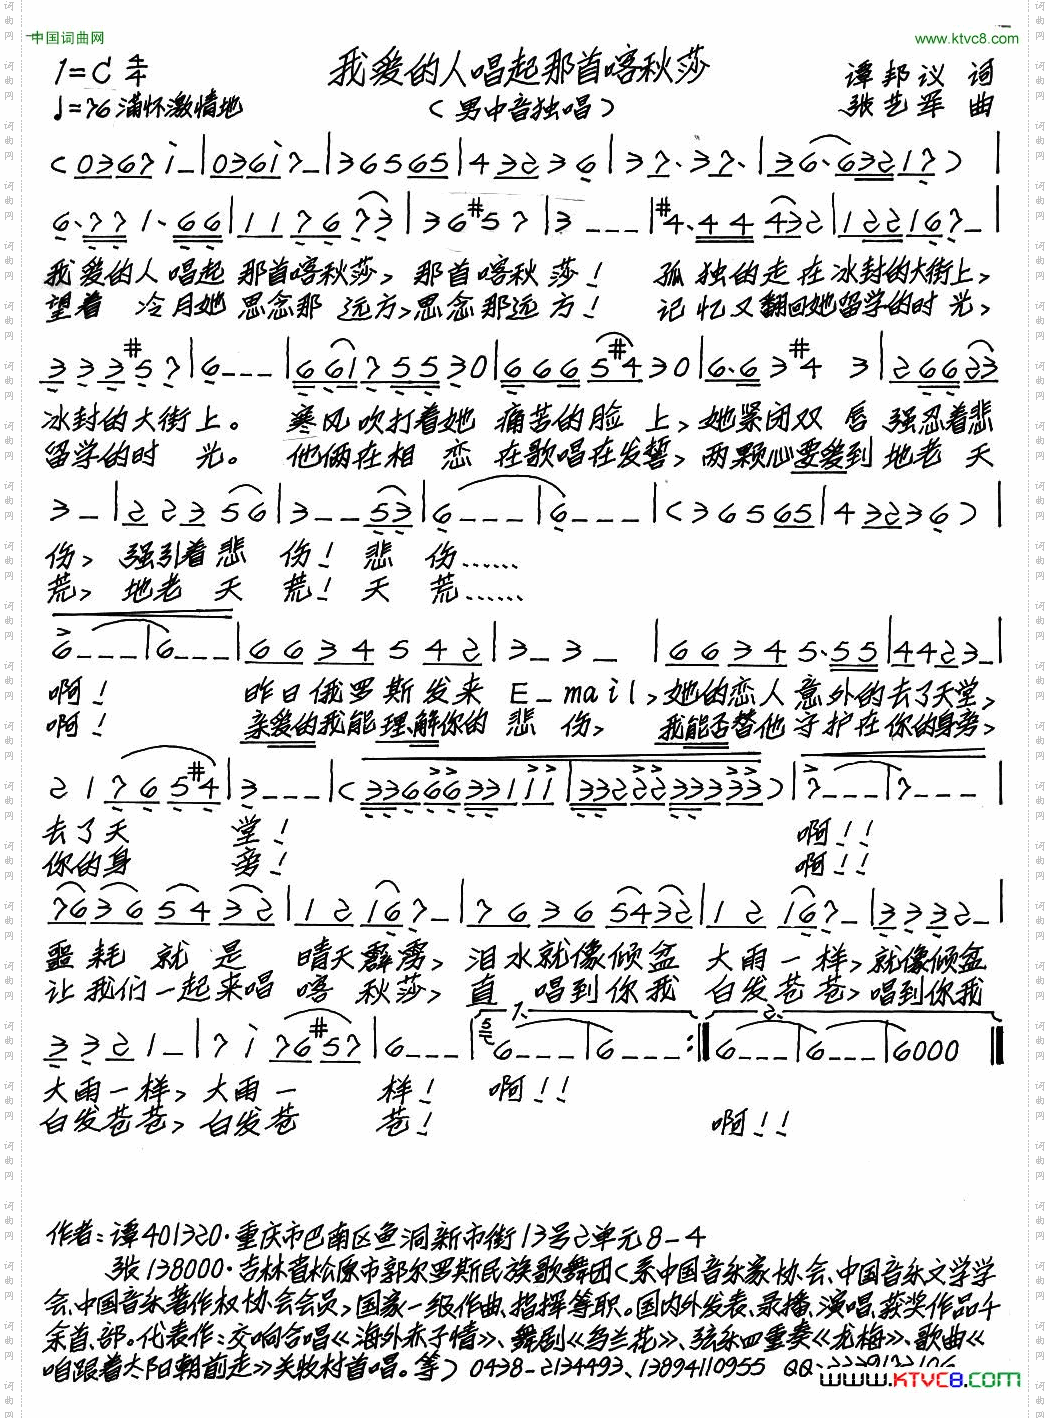 中国词曲网
www.ktvc8.com
我爱的人唱起那首喀秋莎
1=C 4/4
谭邦议 词
♩=76 满怀激情地
（男中音独唱）
张艺军 曲
我爱的人唱起那首喀秋莎，那首喀秋莎！ 孤独的走在冰封的大街上，
望着冷月她思念那远方，思念那远方！ 记忆又翻回她留学的时光，
冰封的大街上。 寒风吹打着她痛苦的脸上，她紧闭双唇强忍着悲
留学的时光。 他俩在相恋在歌唱在发誓，两颗心要爱到地老天
伤，强引着悲伤！悲伤……
荒，地老天荒！天荒……
啊！ 昨日俄罗斯发来E-mail，她的恋人意外的去了天堂，
啊！ 亲爱的我能理解你的悲伤，我能否替他守护在你的身旁，
去了天堂！ 啊！！
你的身旁！ 啊！！
噩耗就是晴天霹雳，泪水就像倾盆大雨一样，就像倾盆
让我们一起来唱喀秋莎，直唱到你我白发苍苍，唱到你我
大雨一样，大雨一样！ 啊！！
白发苍苍，白发苍苍！ 啊！！
作者：谭401320·重庆市巴南区鱼洞新市街13号2单元8-4
张138000·吉林省松原市郭尔罗斯民族歌舞团（系中国音乐家协会、中国音乐文学学
会、中国音乐著作权协会会员，国家一级作曲、指挥等职。国内外发表、录播、演唱、获奖作品千
余首、部。代表作：交响合唱《海外赤子情》、舞剧《乌兰花》、弦乐四重奏《龙梅》、歌曲《
咱跟着太阳朝前走》关牧村首唱。等）0438-2134493、13894110955 QQ
www.KTVC8.com